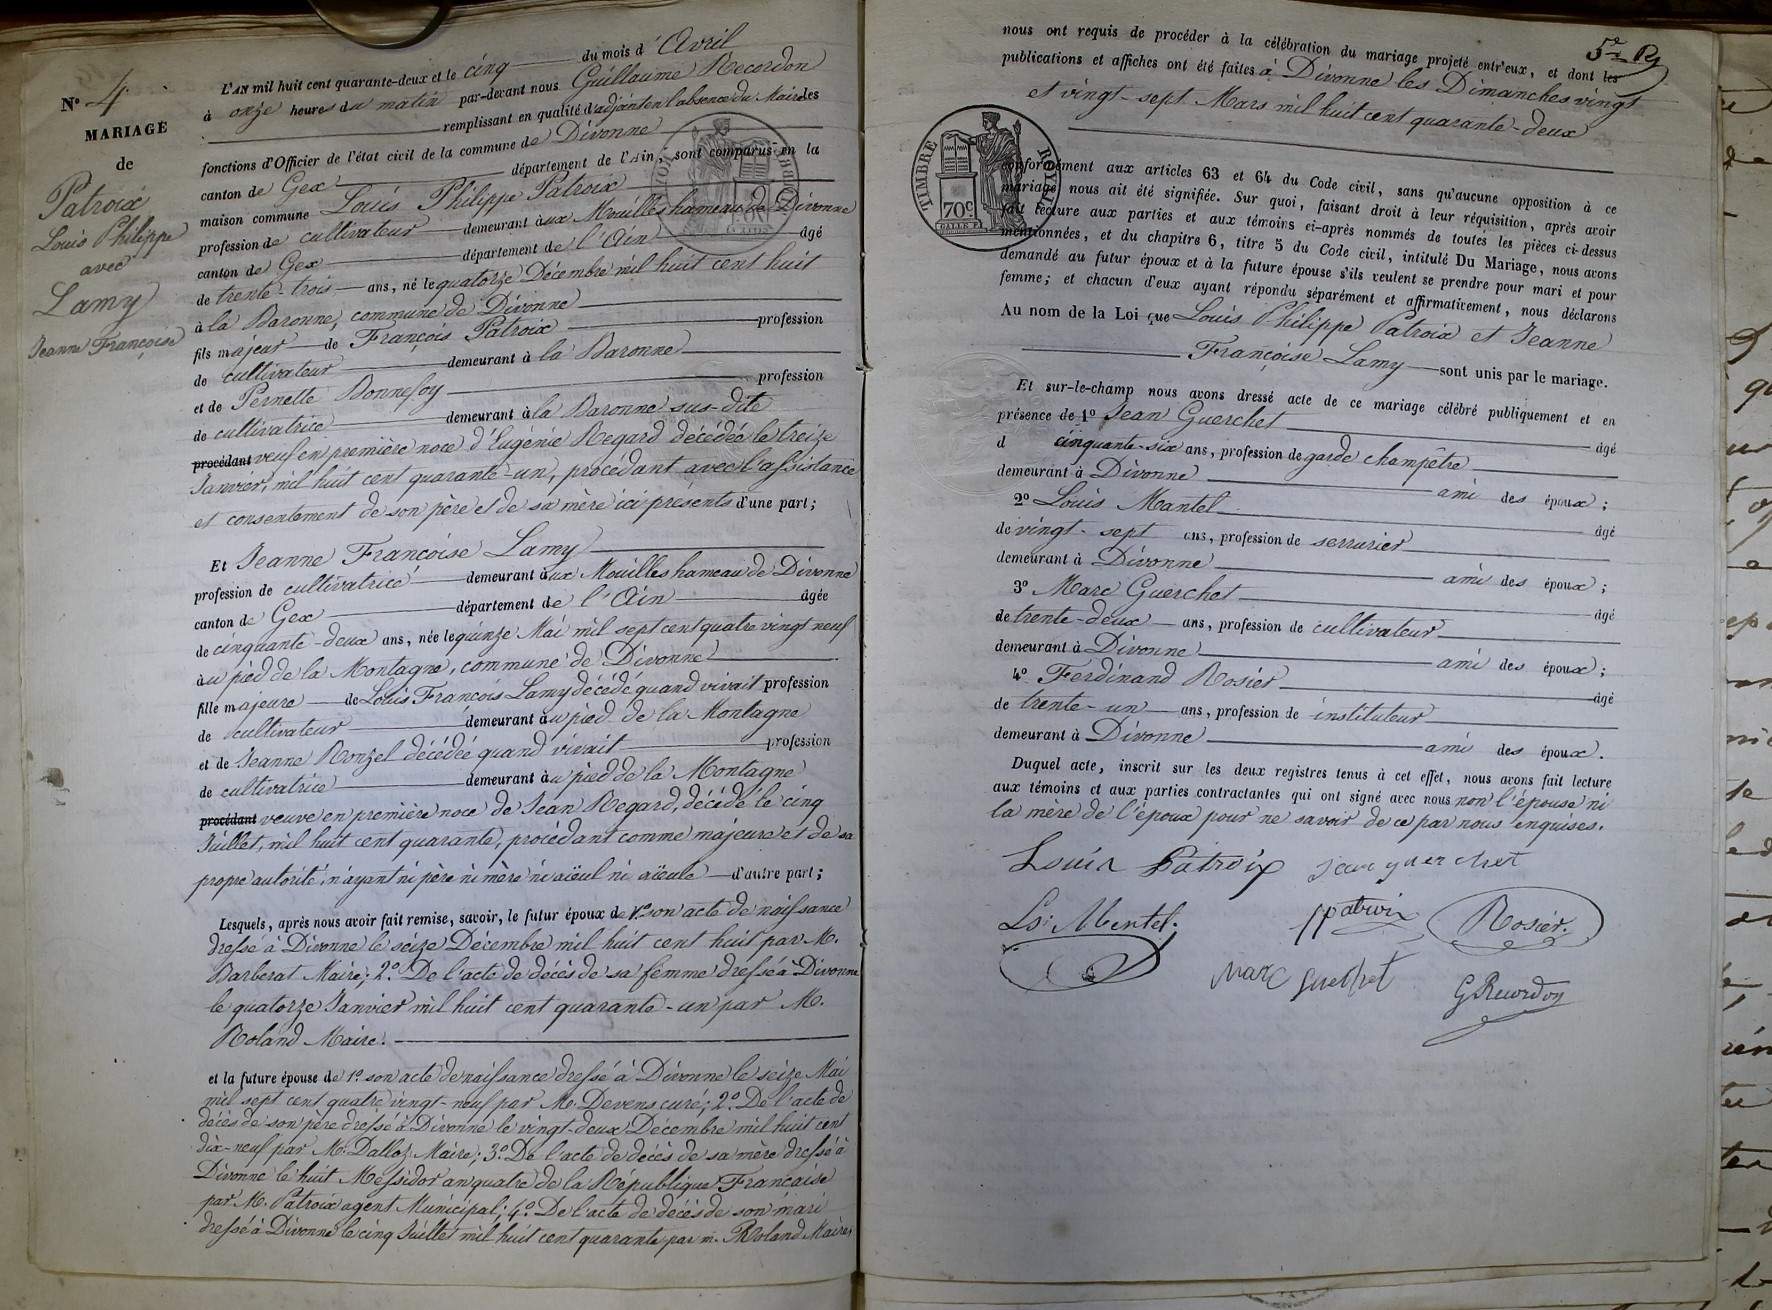 N° 4
MARIAGE
de
Patroix
Louis Philippe
avec
Lamy
Jeanne Françoise
L'AN mil huit cent quarante-deux et le cinq du mois d'Avril
à onze heures du matin par-devant nous Guillaume Recordon
remplissant en qualité d'adjoint en l'absence du Maire les
fonctions d'Officier de l'état civil de la commune de Divonne
canton de Gex département de l'Ain, sont comparus en la
maison commune Louis Philippe Patroix
profession de cultivateur demeurant aux Mouilles hameau de Divonne
canton de Gex département de l'Ain âgé
de trente-trois ans, né le quatorze Décembre mil huit cent huit
à la Baronne, commune de Divonne
fils majeur de François Patroix profession
de cultivateur demeurant à la Baronne
et de Pernette Bonnefoy profession
de cultivatrice demeurant à la Baronne sus-dite
procédant veuf en première noce d'Eugénie Regard décédée le treize
Janvier, mil huit cent quarante-un, procédant avec l'assistance
et consentement de son père et de sa mère ici présents d'une part;
Et Jeanne Françoise Lamy
profession de cultivatrice demeurant aux Mouilles hameau de Divonne
canton de Gex département de l'Ain âgée
de cinquante-deux ans, née le quinze Mai mil sept cent quatre vingt neuf
au pied de la Montagne, commune de Divonne
fille majeure de Louis François Lamy décédé quand vivait profession
de cultivateur demeurant au pied de la Montagne
et de Jeanne Ronzel décédée quand vivait profession
de cultivatrice demeurant au pied de la Montagne
procédant veuve en première noce de Jean Regard, décédé le cinq
Juillet, mil huit cent quarante, procédant comme majeure et de sa
propre autorité, n'ayant ni père ni mère ni aïeul ni aïeule d'autre part;
Lesquels, après nous avoir fait remise, savoir, le futur époux de 1° son acte de naissance
dressé à Divonne le seize Décembre mil huit cent huit par M.
Barberat Maire; 2° De l'acte de décès de sa femme dressé à Divonne
le quatorze Janvier mil huit cent quarante-un par M.
Roland Maire.
et la future épouse de 1° son acte de naissance dressé à Divonne le seize Mai
mil sept cent quatre vingt-neuf par M. Devens curé; 2° De l'acte de
décès de son père dressé à Divonne le vingt-deux Décembre mil huit cent
dix-neuf par M. Dalloz Maire; 3° De l'acte de décès de sa mère dressé à
Divonne le huit Messidor an quatre de la République Française
par M. Patroix agent Municipal; 4° De l'acte de décès de son mari
dressé à Divonne le cinq Juillet mil huit cent quarante par m. Roland Maire,
nous ont requis de procéder à la célébration du mariage projeté entr'eux, et dont les
publications et affiches ont été faites à Divonne les Dimanches vingt
et vingt-sept Mars mil huit cent quarante-deux
TIMBRE ROYAL
70c
conformément aux articles 63 et 64 du Code civil, sans qu'aucune opposition à ce
mariage nous ait été signifiée. Sur quoi, faisant droit à leur réquisition, après avoir
fait lecture aux parties et aux témoins ci-après nommés de toutes les pièces ci-dessus
mentionnées, et du chapitre 6, titre 5 du Code civil, intitulé Du Mariage, nous avons
demandé au futur époux et à la future épouse s'ils veulent se prendre pour mari et pour
femme; et chacun d'eux ayant répondu séparément et affirmativement, nous déclarons
Au nom de la Loi que Louis Philippe Patroix et Jeanne
Françoise Lamy sont unis par le mariage.
Et sur-le-champ nous avons dressé acte de ce mariage célébré publiquement et en
présence de 1° Jean Guerchet âgé
d cinquante-six ans, profession de garde champêtre
demeurant à Divonne ami des époux;
2° Louis Mantel âgé
de vingt-sept ans, profession de serrurier
demeurant à Divonne ami des époux;
3° Marc Guerchet âgé
de trente-deux ans, profession de cultivateur
demeurant à Divonne ami des époux;
4° Ferdinand Rosier âgé
de trente-un ans, profession de instituteur
demeurant à Divonne ami des époux.
Duquel acte, inscrit sur les deux registres tenus à cet effet, nous avons fait lecture
aux témoins et aux parties contractantes qui ont signé avec nous non l'épouse ni
la mère de l'époux pour ne savoir de ce par nous enquises.
Louis Patroix jean guerchet
Ls. Mentel. fpatroix Rosier.
Marc guerchet GRecordon